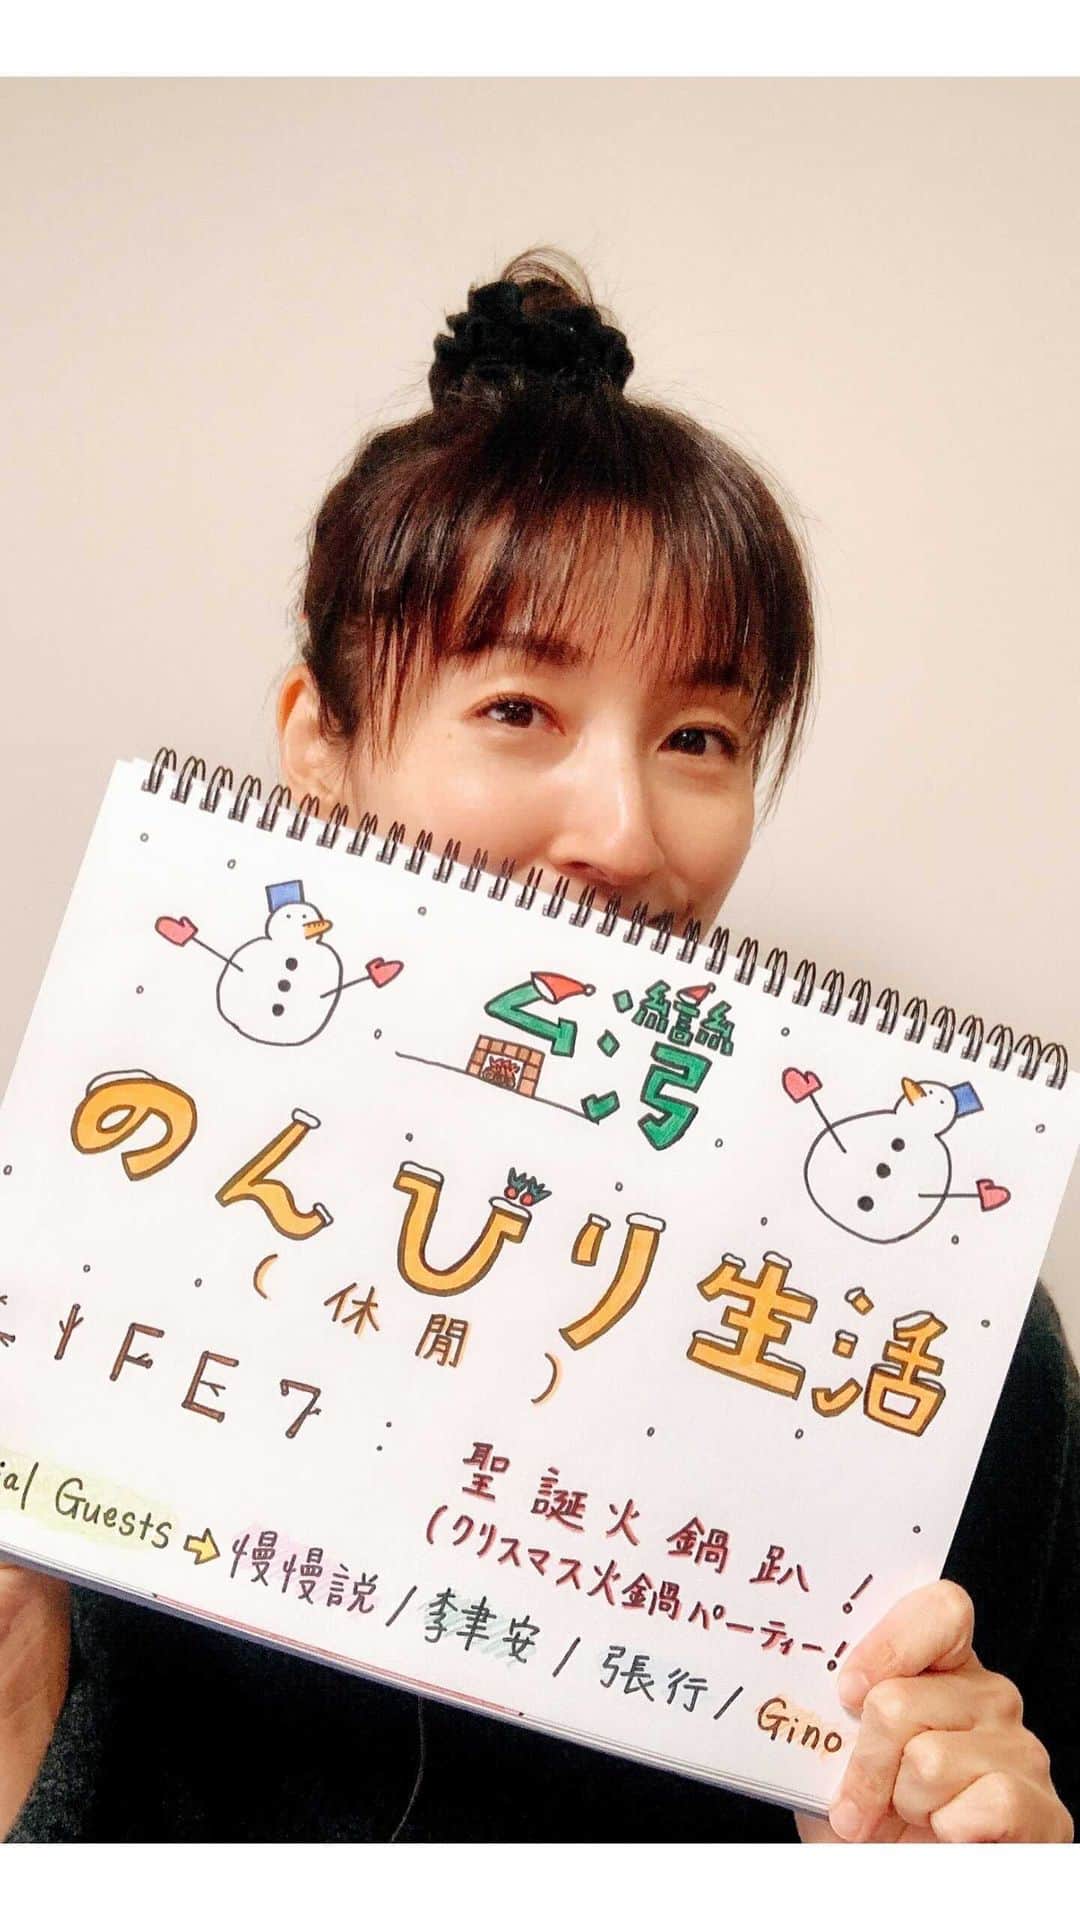 台灣
のんびり生活
(休閒)
LIFE 7:
聖誕火鍋趴!
(クリスマス火鍋パーティー!
ial Guests ⇨ 慢慢説 / 李聿安 / 張行 / Gino